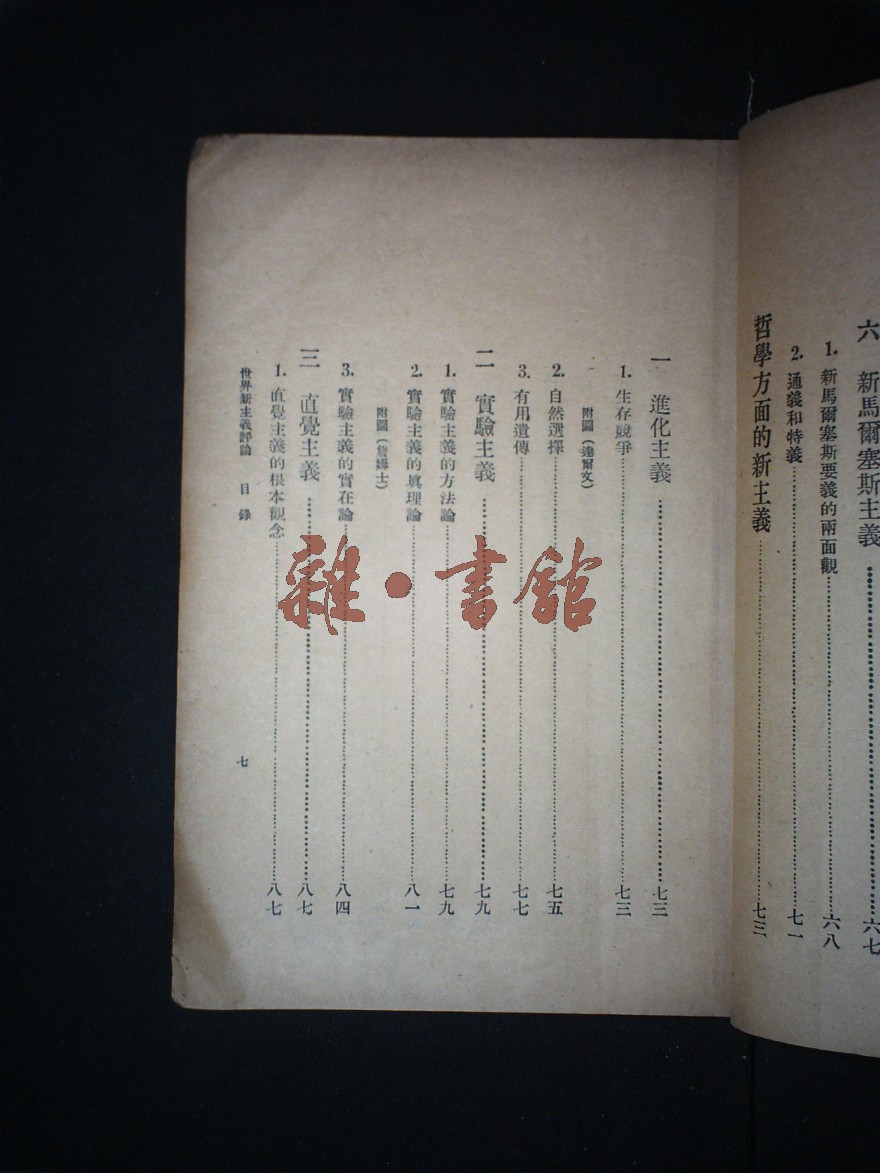 六 新馬爾塞斯主義 六七
1. 新馬爾塞斯要義的兩面觀 六八
2. 通義和特義 七一
哲學方面的新主義 七三
一 進化主義 七三
1. 生存競爭 七三
附圖（達爾文）
2. 自然選擇 七五
3. 有用遺傳 七七
二 實驗主義 七九
1. 實驗主義的方法論 七九
2. 實驗主義的眞理論 八一
附圖（詹姆士）
3. 實驗主義的實在論 八四
三 直覺主義 八七
1. 直覺主義的根本觀念 八七
世界新主義評論 目錄 七
雜·書館